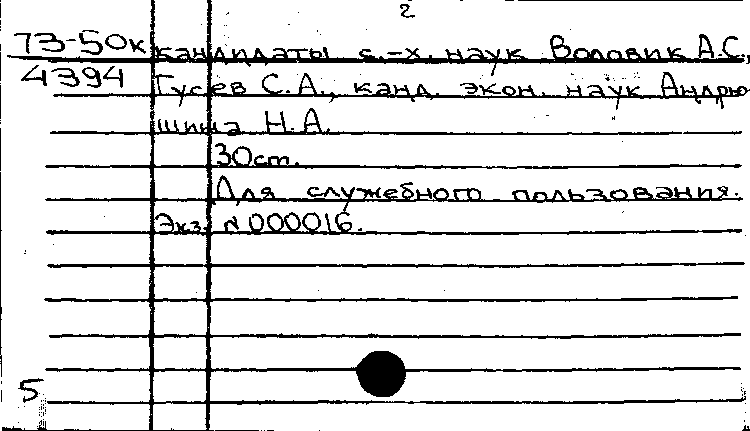 2
73-50к кандидаты с.-х. наук Воловик А.С.,
4394 Гусев С.А., канд. экон. наук Андрю
шина Н.А.
30см.
Для служебного пользования.
Экз. N000016.
5